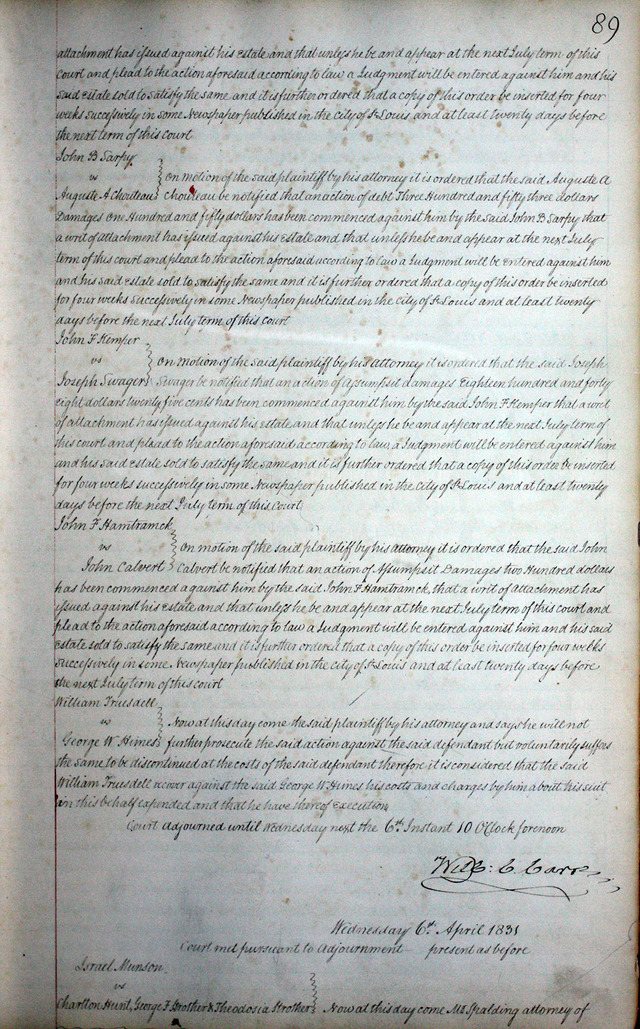 89
attachment has issued against his Estate and that unless he be and appear at the next July term of this
Court and plead to the action aforesaid according to law a Judgment will be entered against him and his
said Estate sold to satisfy the same and it is further ordered that a copy of this order be inserted for four
weeks successively in some Newspaper published in the City of St Louis and at least twenty days before
the next term of this Court
John B Sarpy
vs
On motion of the said plaintiff by his attorney it is ordered that the said Auguste A
Auguste A Chouteau Chouteau be notified that an action of debt Three Hundred and fifty three dollars
Damages One Hundred and fifty dollars has been commenced against him by the said John B Sarpy that
a writ of attachment has issued against his Estate and that unless he be and appear at the next July
term of this court and plead to the action aforesaid according to law a Judgment will be entered against him
and his said Estate sold to satisfy the same and it is further ordered that a copy of this order be inserted
for four weeks Successively in some Newspaper published in the City of St Louis and at least twenty
days before the next July term of this Court
John F Hemper
vs On motion of the said plaintiff by his attorney it is ordered that the said Joseph
Joseph Swager Swager be notified that an action of Assumpsit damages Eighteen hundred and forty
eight dollars twenty five cents has been commenced against him by the said John F Hemper that a writ
of attachment has issued against his Estate and that unless he be and appear at the next July term of
this court and plead to the action aforesaid according to law, a Judgment will be entered against him
and his said Estate sold to satisfy the same and it is further ordered that a copy of this order be inserted
for four weeks successively in some Newspaper published in the City of St Louis and at least twenty
days before the next July term of this Court
John F Hamtramck
vs On motion of the said plaintiff by his attorney it is ordered that the said John
John Calvert Calvert be notified that an action of Assumpsit Damages two Hundred dollars
has been commenced against him by the said John F Hamtramck, that a writ of attachment has
issued against his Estate and that unless he be and appear at the next July term of this court and
plead to the action aforesaid according to law a Judgment will be entered against him and his said
Estate sold to satisfy the same and it is further ordered that a copy of this order be inserted for four weeks
Successively in some Newspaper published in the City of St Louis and at least twenty days before
the next July term of this Court
William Truesdell
vs Now at this day come the said plaintiff by his attorney and says he will not
George W Himes further prosecute the said action against the said defendant but voluntarily suffers
the same to be discontinued at the costs of the said defendant therefore it is considered that the said
William Truesdell recover against the said George W Himes his costs and charges by him about his suit
in this behalf expended and that he have thereof execution
Court Adjourned until Wednesday next the 6th Instant 10 O'Clock forenoon
Wm C. Carr
Wednesday 6th April 1831
Court met pursuant to Adjournment present as before
Israel Munson
vs
Charlton Hunt, George F Strother & Theodosia Strother Now at this day come Mr Spalding attorney of